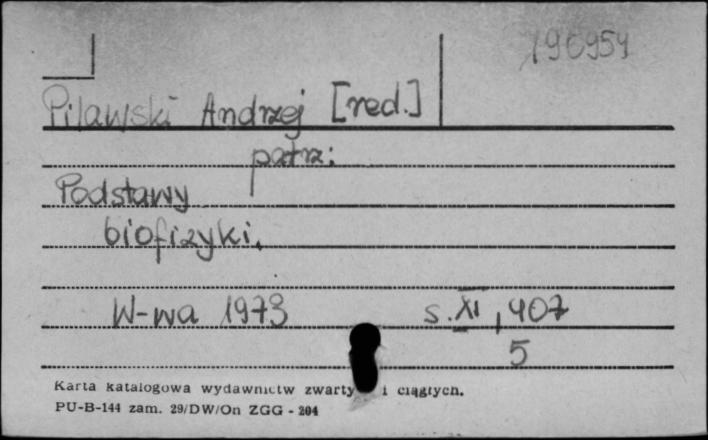 196954
Pilawski Andrzej [red.]
patrz:
Podstawy
biofizyki.
W-wa 1973 s. XI, 407
5
Karta katalogowa wydawnictw zwartych i ciągłych.
PU-B-144 zam. 29/DW/On ZGG - 204